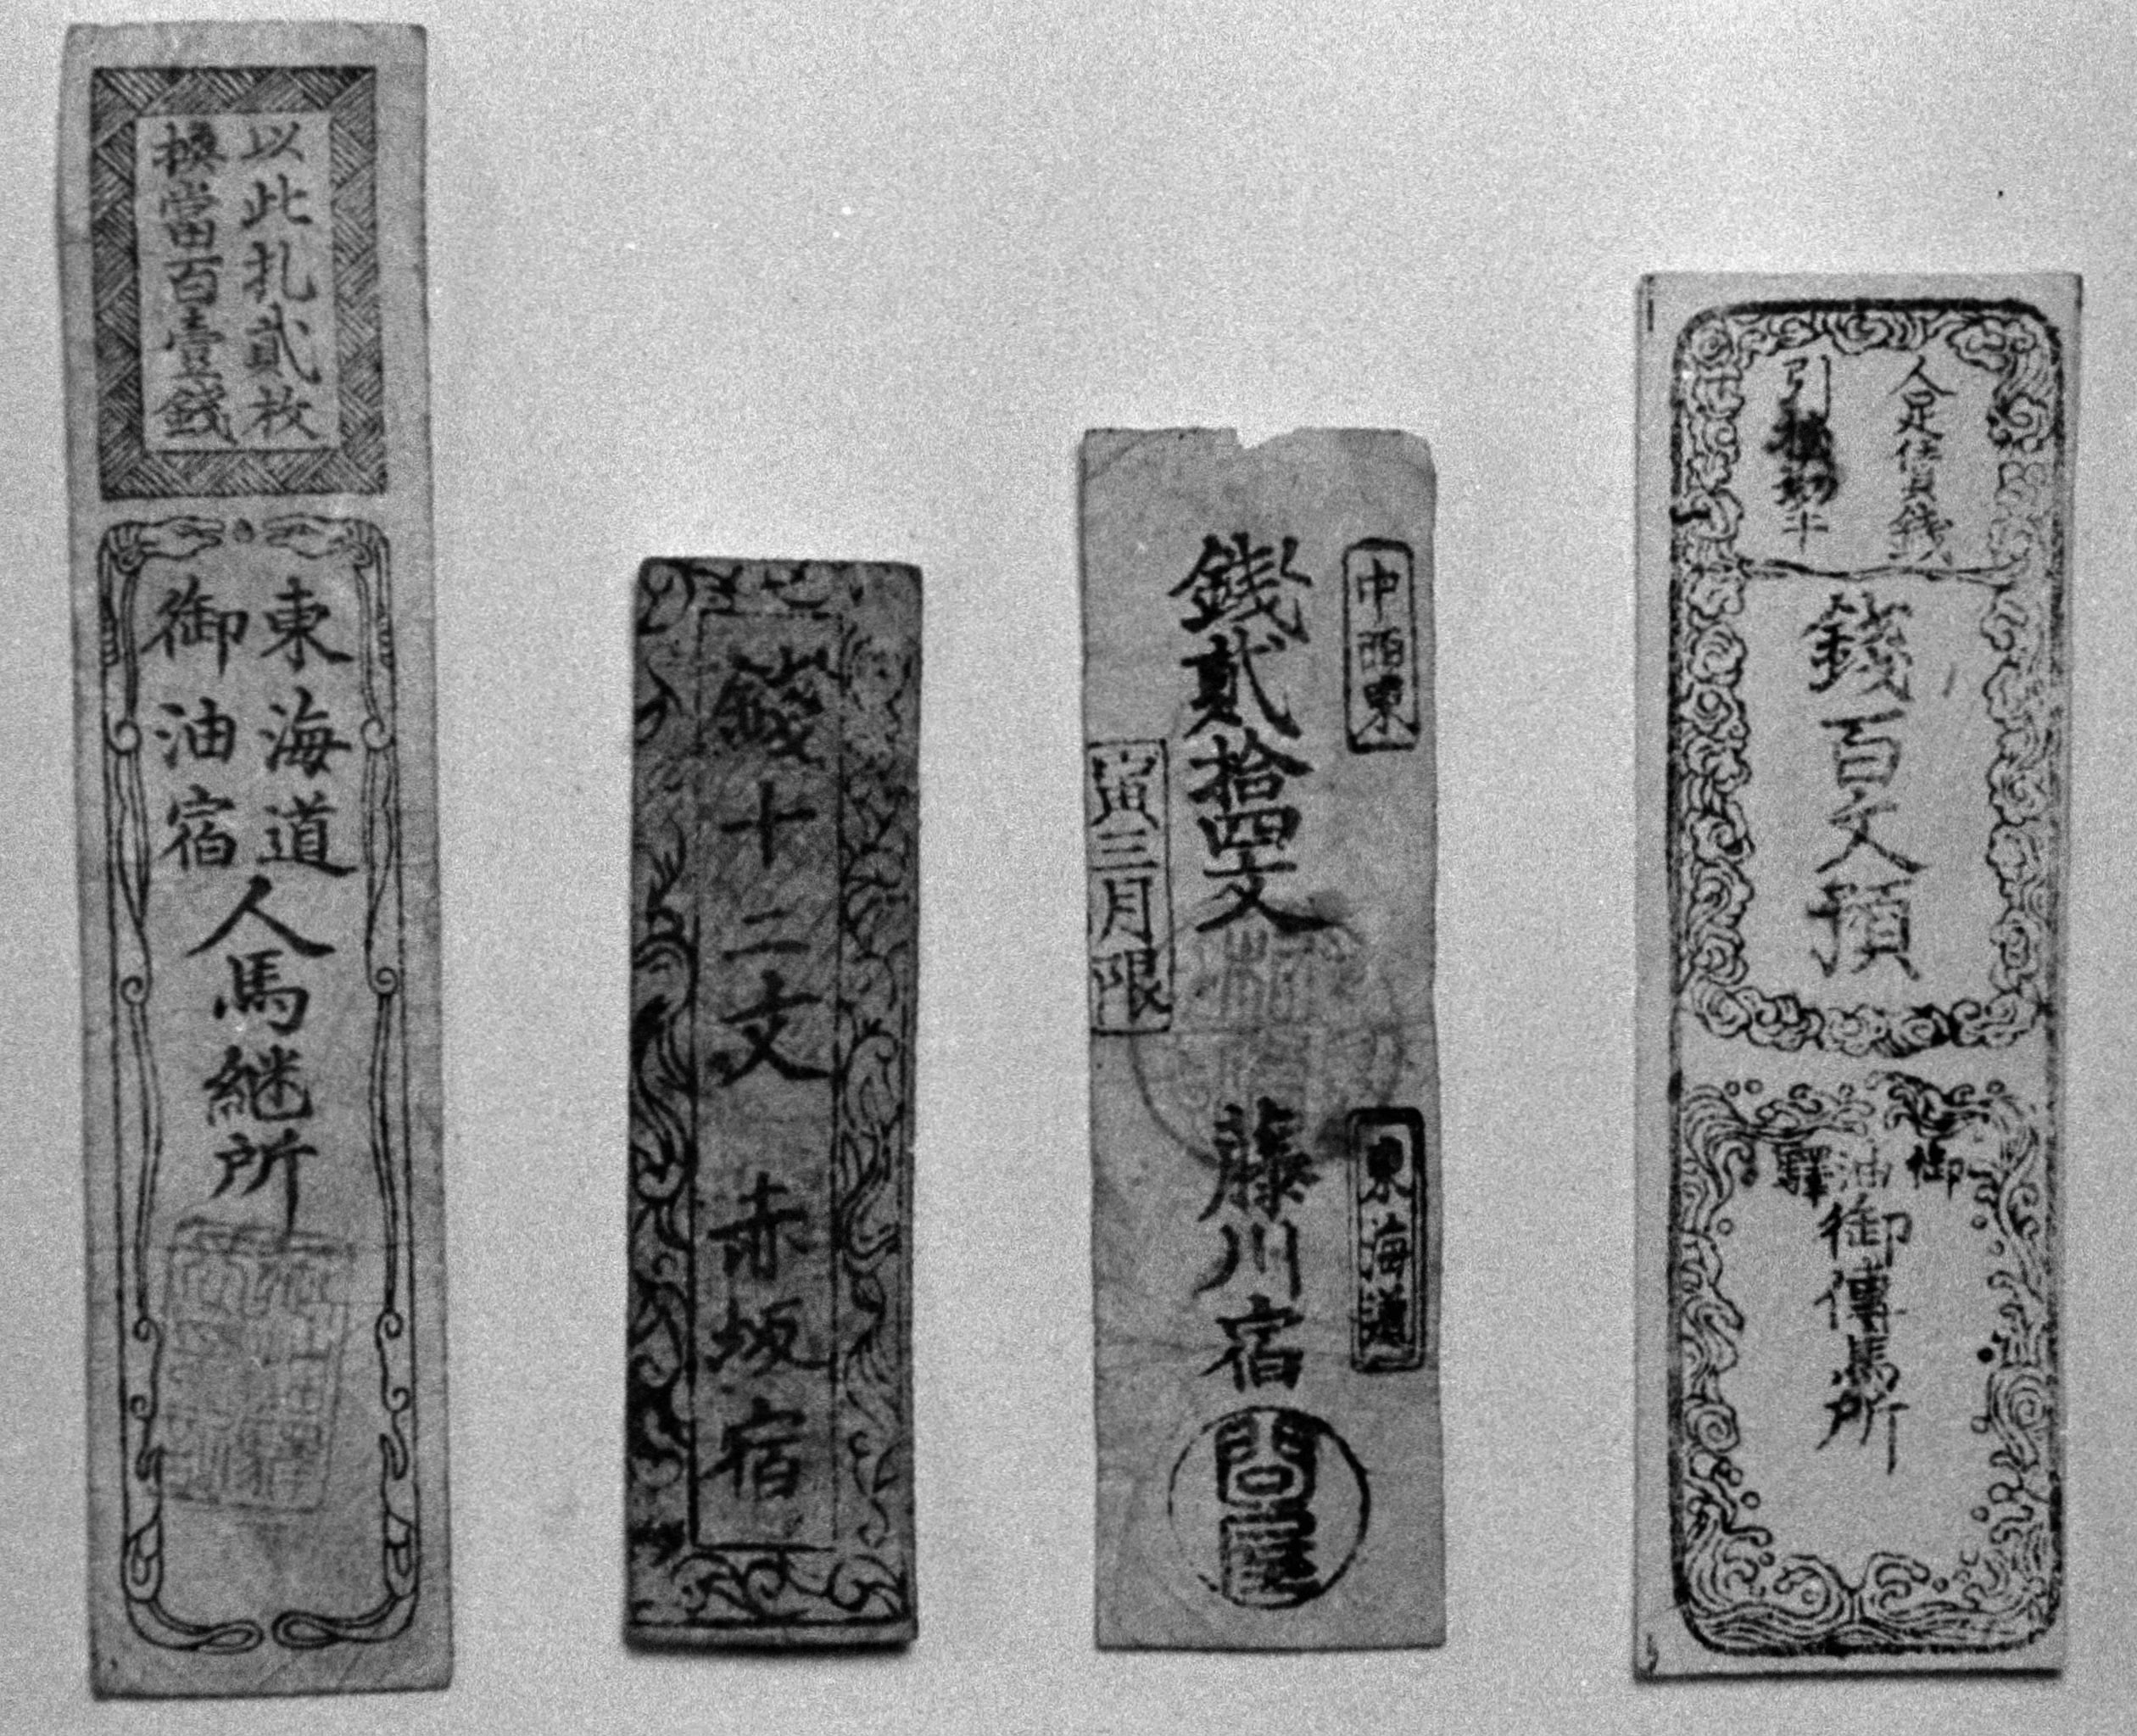 以此札貳枚
換當百壹錢
東海道
御油宿
人馬継所
錢十二文
赤坂宿
中西東
銭貳拾四文
寅三月限
藤川宿
東海道
問屋
人足賃錢
引換切手
錢百文預
御油驛
御傳馬所